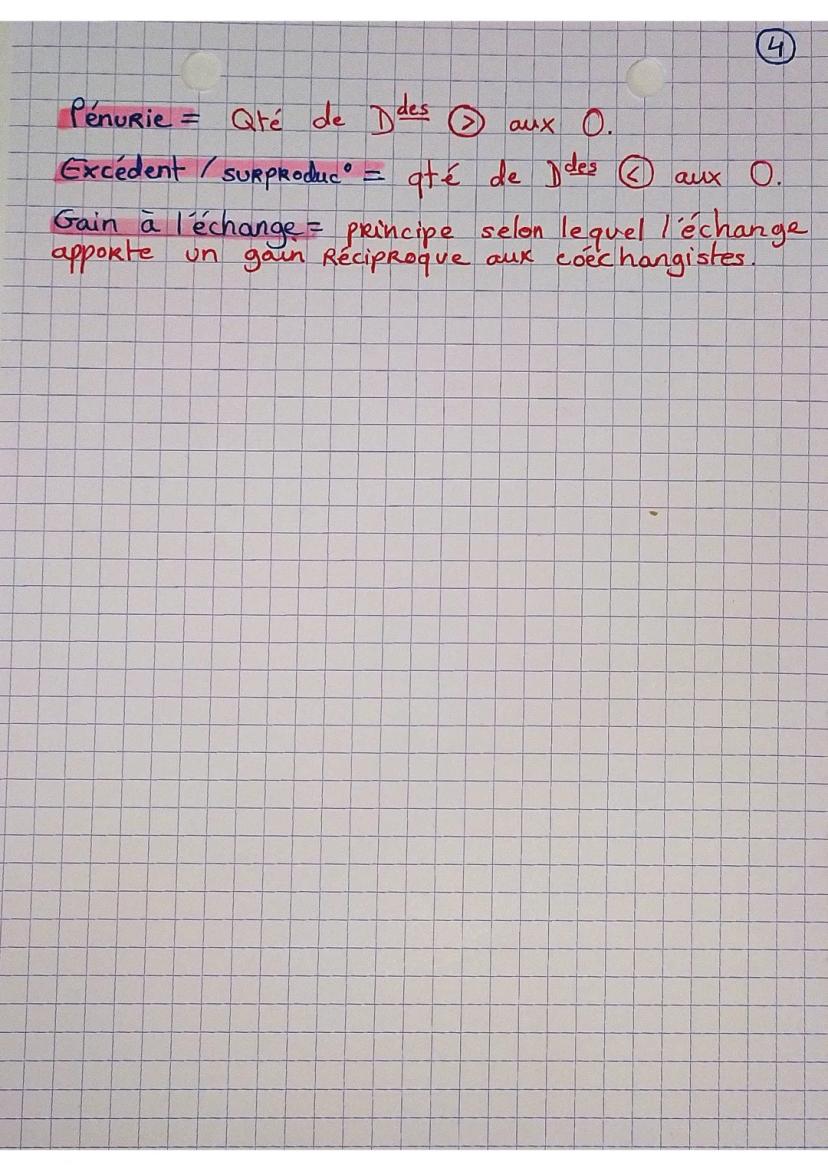 4
Pénurie = Qté de Ddes > aux O.
Excédent / surproduc° = qté de Ddes < aux O.
Gain à l'échange = principe selon lequel l'échange
apporte un gain réciproque aux coéchangistes.